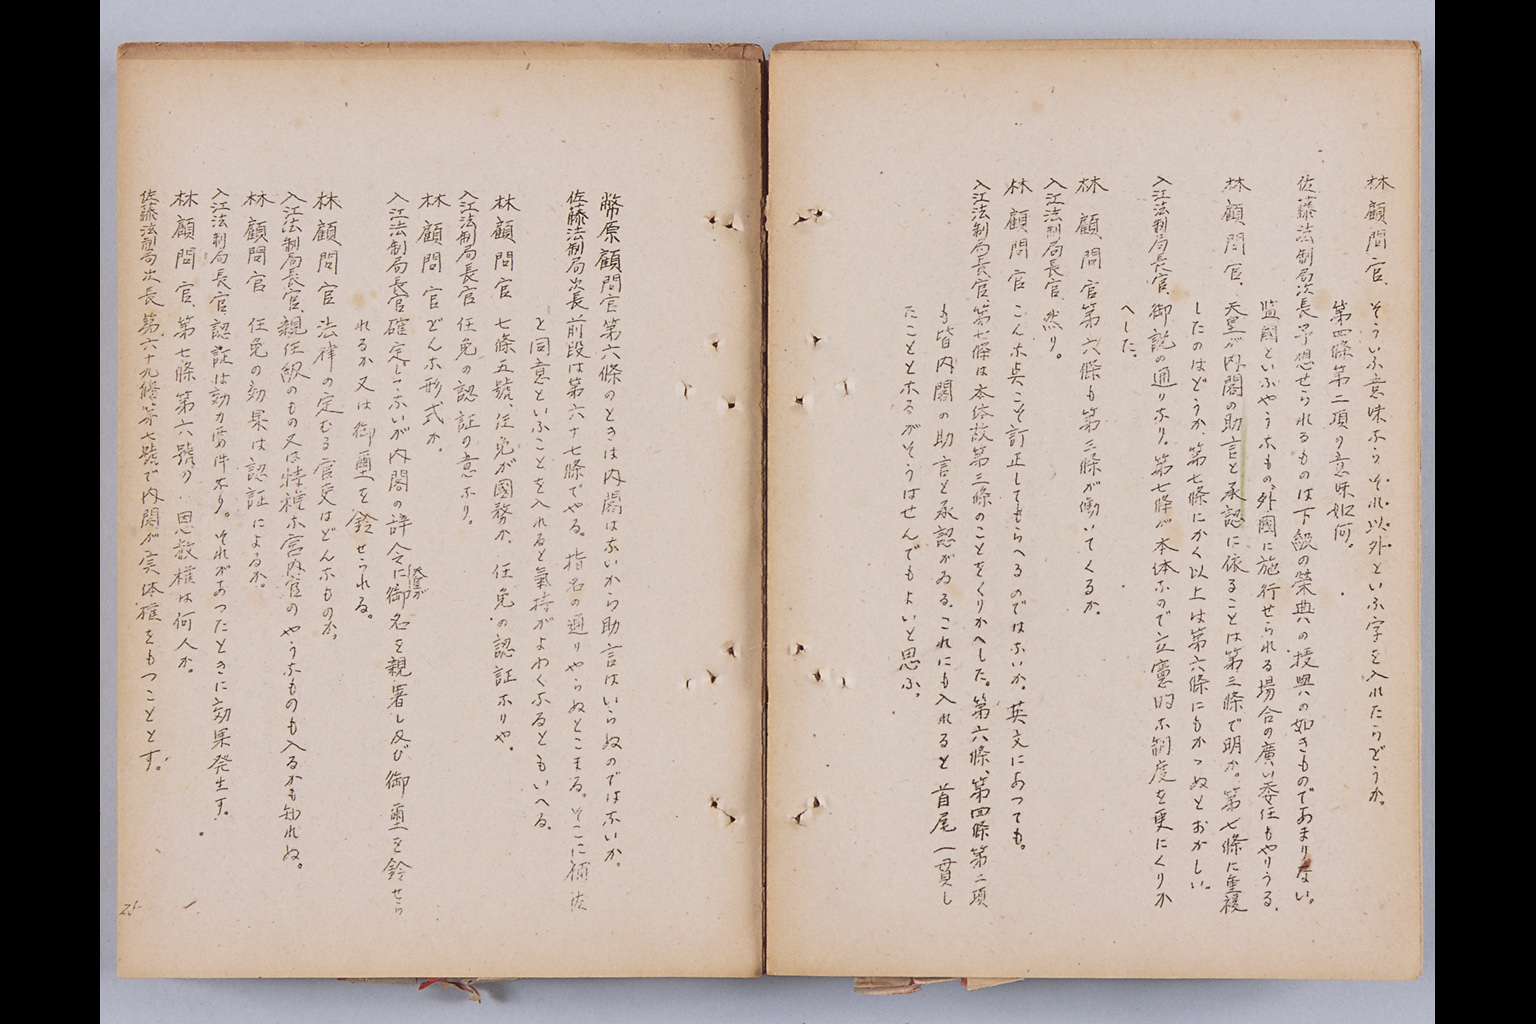 林顧問官、そういふ意味ならそれ以外といふ字を入れたらどうか。
第四條第二項の意味如何。
佐藤法制局次長 予想せられるものは下級の榮典の授與の如きものであまりない。
監國といふやうなもの、外國に施行せられる場合の廣い委任もやりうる。
林顧問官、天皇が内閣の助言と承認に依ることは第三條で明か。第七條に重複
したのはどうか、第七條にかく以上は第六條にもかゝぬとおかしい。
入江法制局長官、御説の通りなり。第七條が本体なので立憲的な制度を更にくりか
へした。
林顧問官 第六條も第三條が働いてくるか。
入江法制局長官 然り。
林顧問官 こんな点こそ訂正してもらへるのではないか。英文にあつても。
入江法制局長官 第七條は本体故第三條のことをくりかへした。第六條、第四條第二項
も皆内閣の助言と承認がゐる。これにも入れると首尾一貫し
たことゝなるがそうはせんでもよいと思ふ。
幣原顧問官 第六條のときは内閣はないから助言はいらぬのではないか。
佐藤法制局次長 前段は第六十七條でやる。指名の通りやらぬとこまる。そこに補佐
と同意といふことを入れると氣持がよわくなるともいへる。
林顧問官 七條五號、任免が國務か、任免の認証なりや。
入江法制局長官 任免の認証の意なり。
林顧問官 どんな形式か。
入江法制局長官 確定してないが内閣の辞令に天皇が御名を親署し及び御璽を鈴せら
れるか又は御璽を鈴せられる。
林顧問官 法律の定むる官吏はどんなものか。
入江法制局長官、親任級のもの又は特種な宮内官のやうなものも入るかも知れぬ。
林顧問官 任免の効果は認証によるか。
入江法制局長官、認証は効力要件なり。それがあつたときに効果発生す。
林顧問官、第七條第六號の恩赦権は何人か。
佐藤法制局次長 第六十九條第七號で内閣が実体権をもつこととす。
25